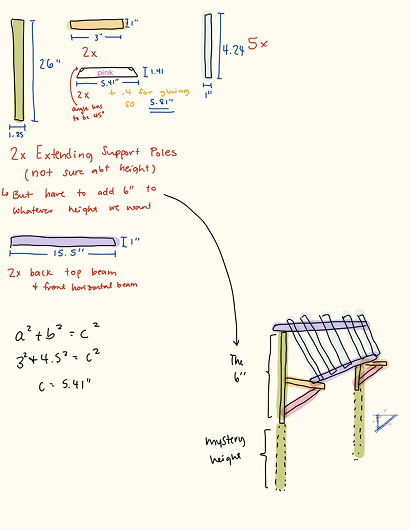 1"
3"
2x
26"
pink
1.41
5.41"
2x
+ .4 for gluing
so 5.81"
angle has
to be 45°
4.24
5x
1"
1.25
2x Extending Support Poles
(not sure abt height)
↳ But have to add 6" to
whatever height we want
1"
15.5"
2x back top beam
+ front horizontal beam
a² + b² = c²
3² + 4.5² = c²
c = 5.41"
The
6"
mystery
height